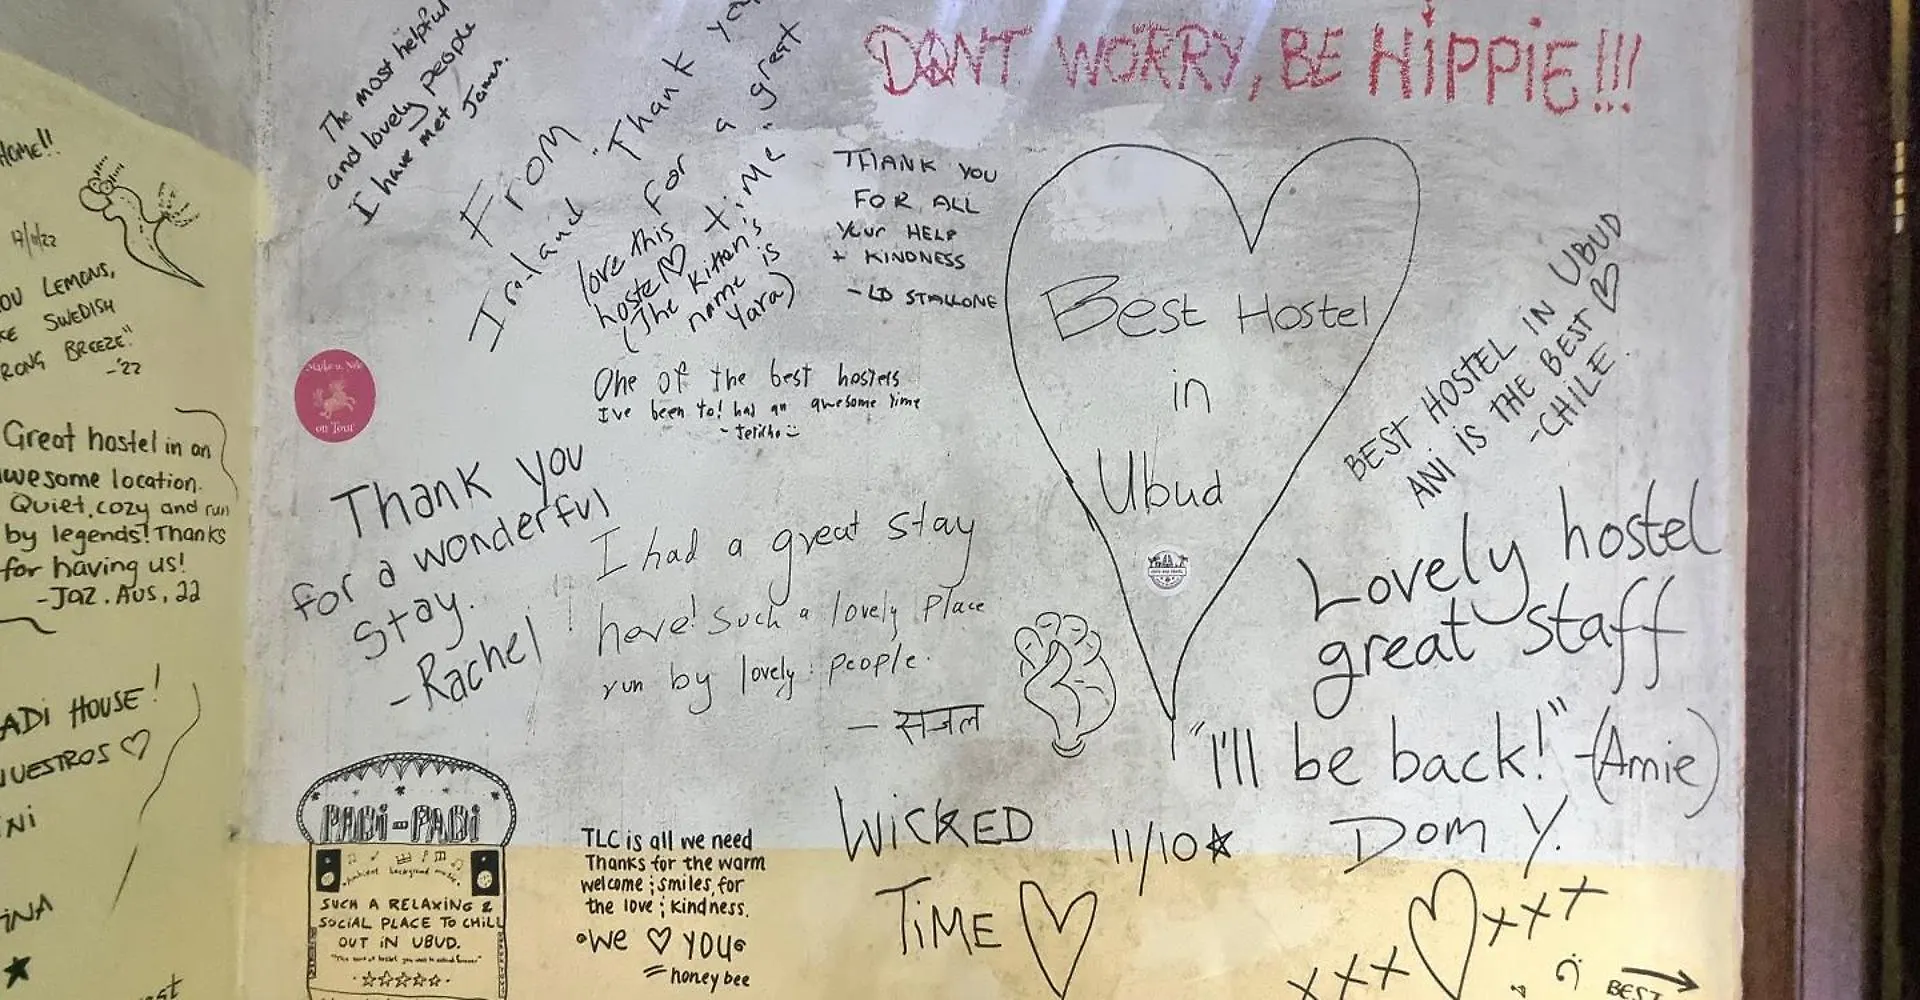 HOME!!
17/11/22
OU LEMONS,
KE SWEDISH
RONG BREEZE."
-'22
Great hostel in an
wesome location.
Quiet, cozy and run
by legends! Thanks
for having us!
-JAZ. AUS, 22
ADI HOUSE!
NUESTROS ♡
The most helpful
and lovely people
I have met Jaws.
From
Ireland
"Thank you
for a great
time"
love this
hostel♡
(The kitten's
name is
Yara)
THANK YOU
FOR ALL
YOUR HELP
+ KINDNESS
- LD STALLONE
DON'T WORRY, BE HIPPIE!!!
Best Hostel
in
Ubud
BEST HOSTEL IN UBUD
ANI IS THE BEST ♡
-CHILE.
on Tour
One of the best hostels
I've been to! had an awesome time
- Jericho
Thank you
for a wonderful
stay.
-Rachel
I had a great stay
here! such a lovely place
run by lovely people.
— सजल
Lovely hostel
great staff
"I'll be back!" -(Amie)
PADI-PADI
Ambient background music
SUCH A RELAXING &
SOCIAL PLACE TO CHILL
OUT IN UBUD.
TLC is all we need
Thanks for the warm
welcome ; smiles, for
the love ; kindness.
WE ♡ YOU
honey bee
WICKED
TIME ♡
11/10★
Dom Y.
XXX ♡ XXX
BEST